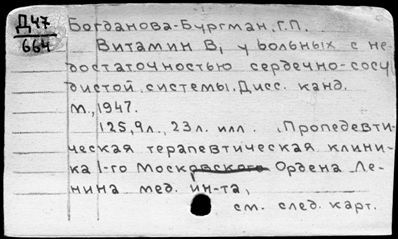 Д47
664
Богданова-Бургман, Г.П.
Витамин В₁ у больных с не-
достаточностью сердечно-сосу
дистой системы. Дисс. канд.
М., 1947.
125, 9л., 23л. илл. (Пропедевти-
ческая терапевтическая клини-
ка 1-го Московского Ордена Ле-
нина мед. ин-та,
см. след. карт.